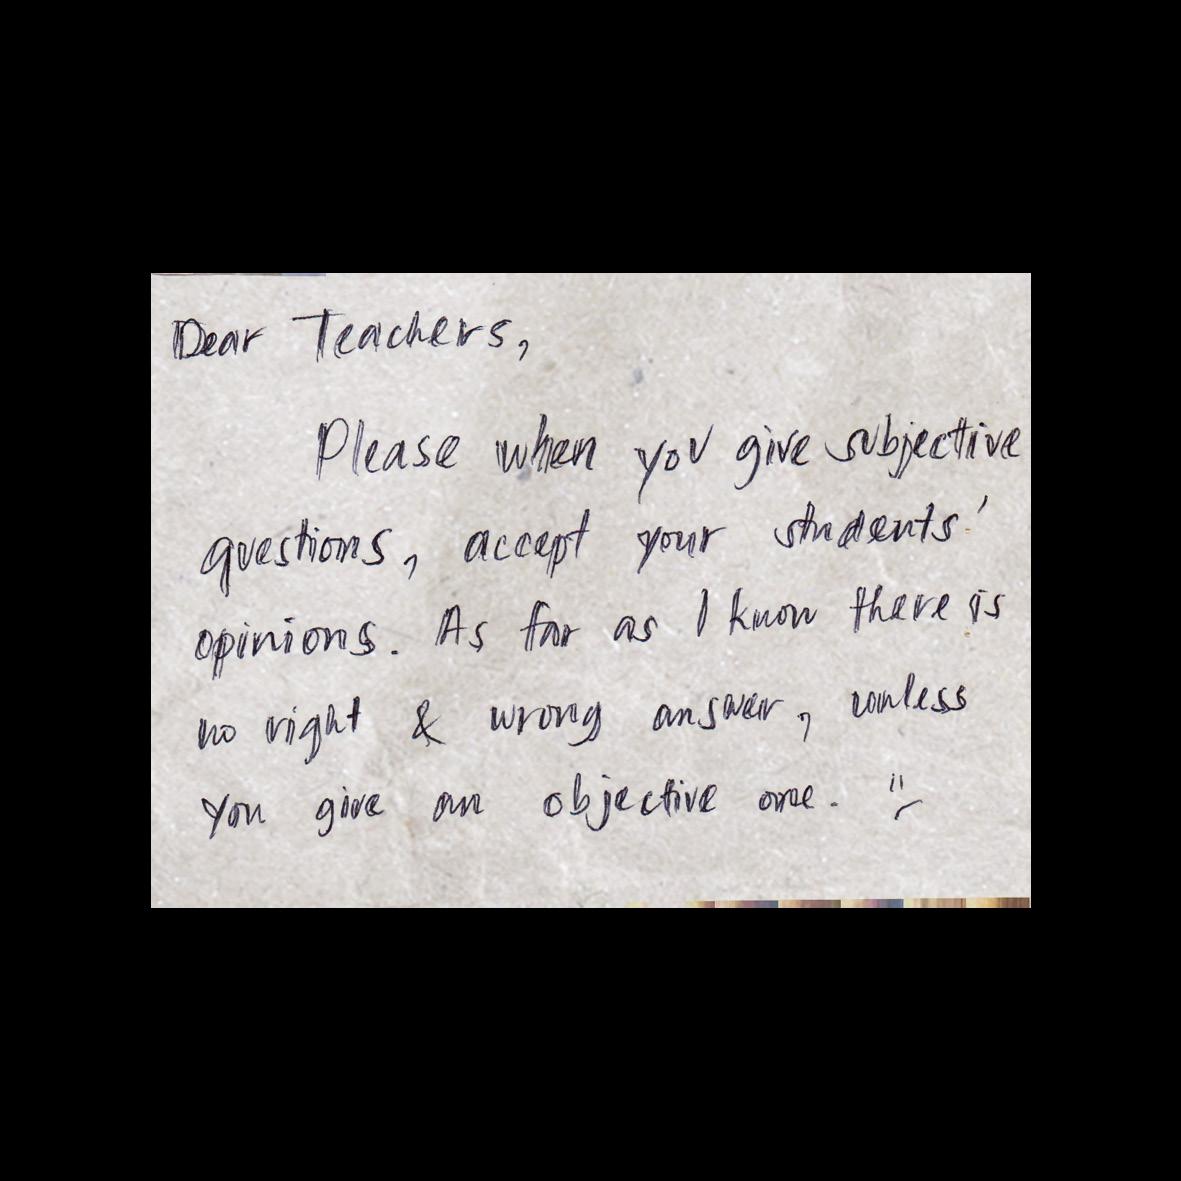 Dear Teachers,
Please when you give subjective
questions, accept your students'
opinions. As far as I know there is
no right & wrong answer, unless
you give an objective one.